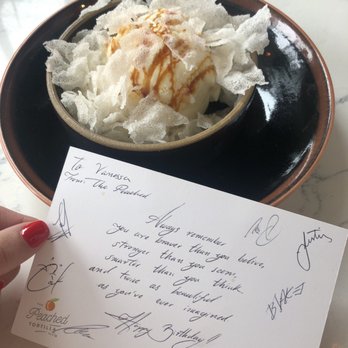 To Vanessa
From: The Peached
Always remember
you are braver than you believe,
stronger than you seem,
smarter than you think
and twice as beautiful
as you've ever imagined
Happy Birthday!!
THE
Peached
TORTILLA